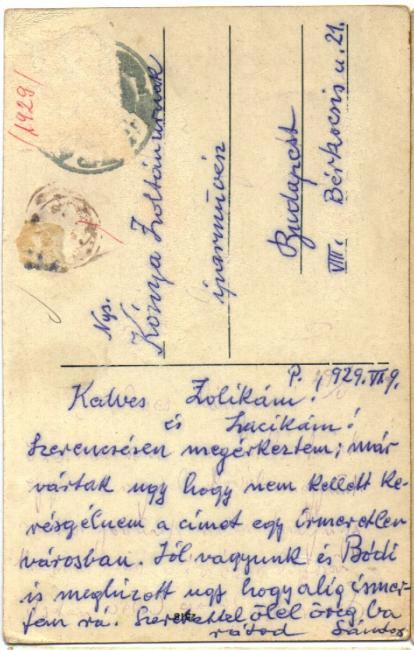 /1929/
Nys.
Kónya Zoltán urnak
iparművész
Budapest
VIII. Bérkocsis u. 21.
P., 929. VII. 9.
Kedves Zolikám!
és Lacikám!
Szerencsésen megérkeztem; már
vártak ugy hogy nem kellett ke-
résgélnem a címet egy ismeretlen
városban. Jól vagyunk és Bódi
is meghízott ugy hogy alig ismer-
tem rá. Szeretettel ölel öreg ba
rátod Sándor